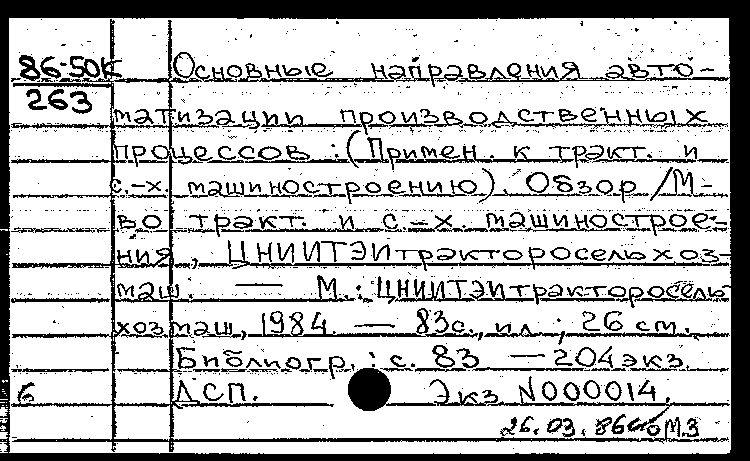 86-50к Основные направления авто-
263
матизации производственных
процессов : (Примен. к тракт. и
с.-х. машиностроению). Обзор /М-
во тракт. и с.-х. машинострое-
ния, ЦНИИТЭИтракторосельхоз-
маш. — М.: ЦНИИТЭИтракторосель-
хозмаш, 1984. — 83с., ил ; 26 см.
Библиогр. : с. 83 — 204 экз.
6 ДСП. Экз N000014.
26.03.86